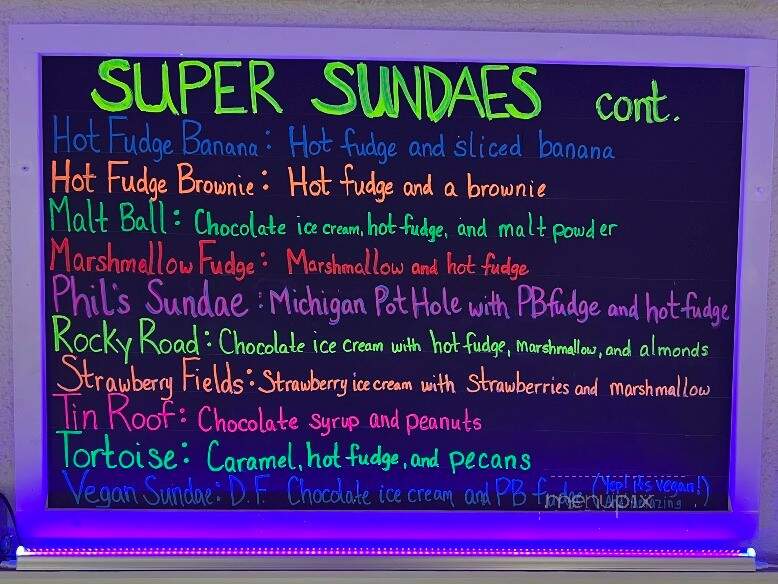 SUPER SUNDAES cont.
Hot Fudge Banana: Hot fudge and sliced banana
Hot Fudge Brownie: Hot fudge and a brownie
Malt Ball: Chocolate ice cream, hot fudge, and malt powder
Marshmallow Fudge: Marshmallow and hot fudge
Phil's Sundae: Michigan Pot Hole with PB fudge and hot fudge
Rocky Road: Chocolate ice cream with hot fudge, marshmallow, and almonds
Strawberry Fields: Strawberry ice cream with strawberries and marshmallow
Tin Roof: Chocolate syrup and peanuts
Tortoise: Caramel, hot fudge, and pecans
Vegan Sundae: D.F. Chocolate ice cream and PB fudge (Yep! its vegan!)
menupix